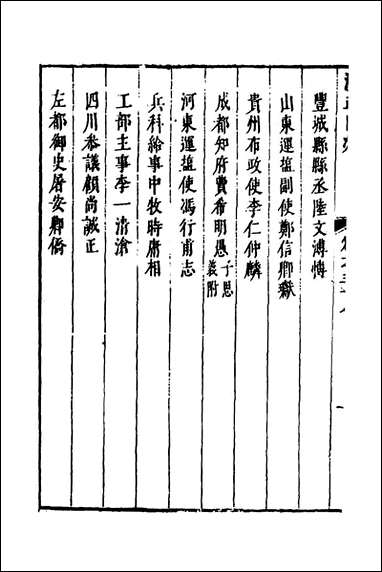 豐城縣縣丞陸文溥博
山東運鹽副使鄭信卿嶽
貴州布政使李仁仲麟
成都知府費希明愚子思義附
河東運鹽使馮行甫志
兵科給事中牧時庸相
工部主事李一清滄
四川叅議顧尚誠正
左都御史屠安卿僑